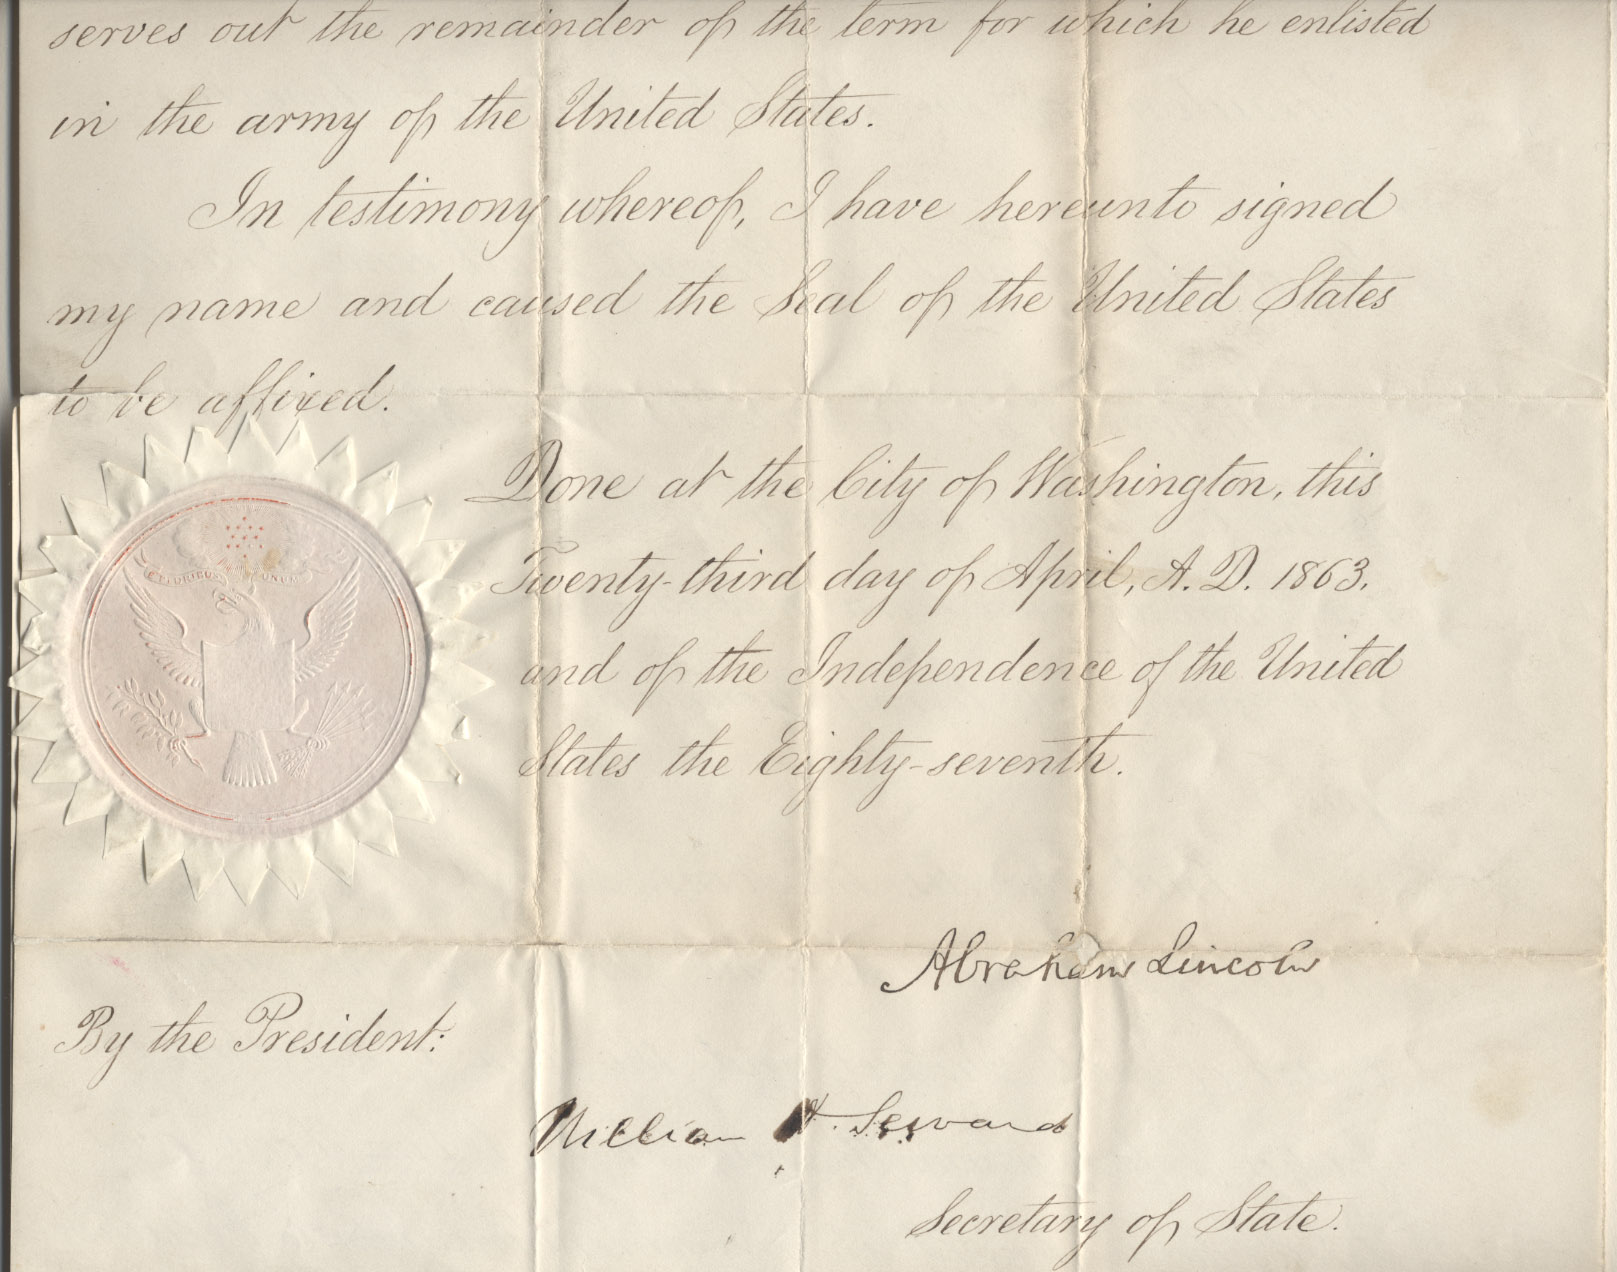 serves out the remainder of the term for which he enlisted
in the army of the United States.
In testimony whereof, I have hereunto signed
my name and caused the Seal of the United States
to be affixed.
E PLURIBUS UNUM
Done at the City of Washington, this
Twenty-third day of April, A. D. 1863.
and of the Independence of the United
States the Eighty-seventh.
Abraham Lincoln
By the President:
William H. Seward
Secretary of State.